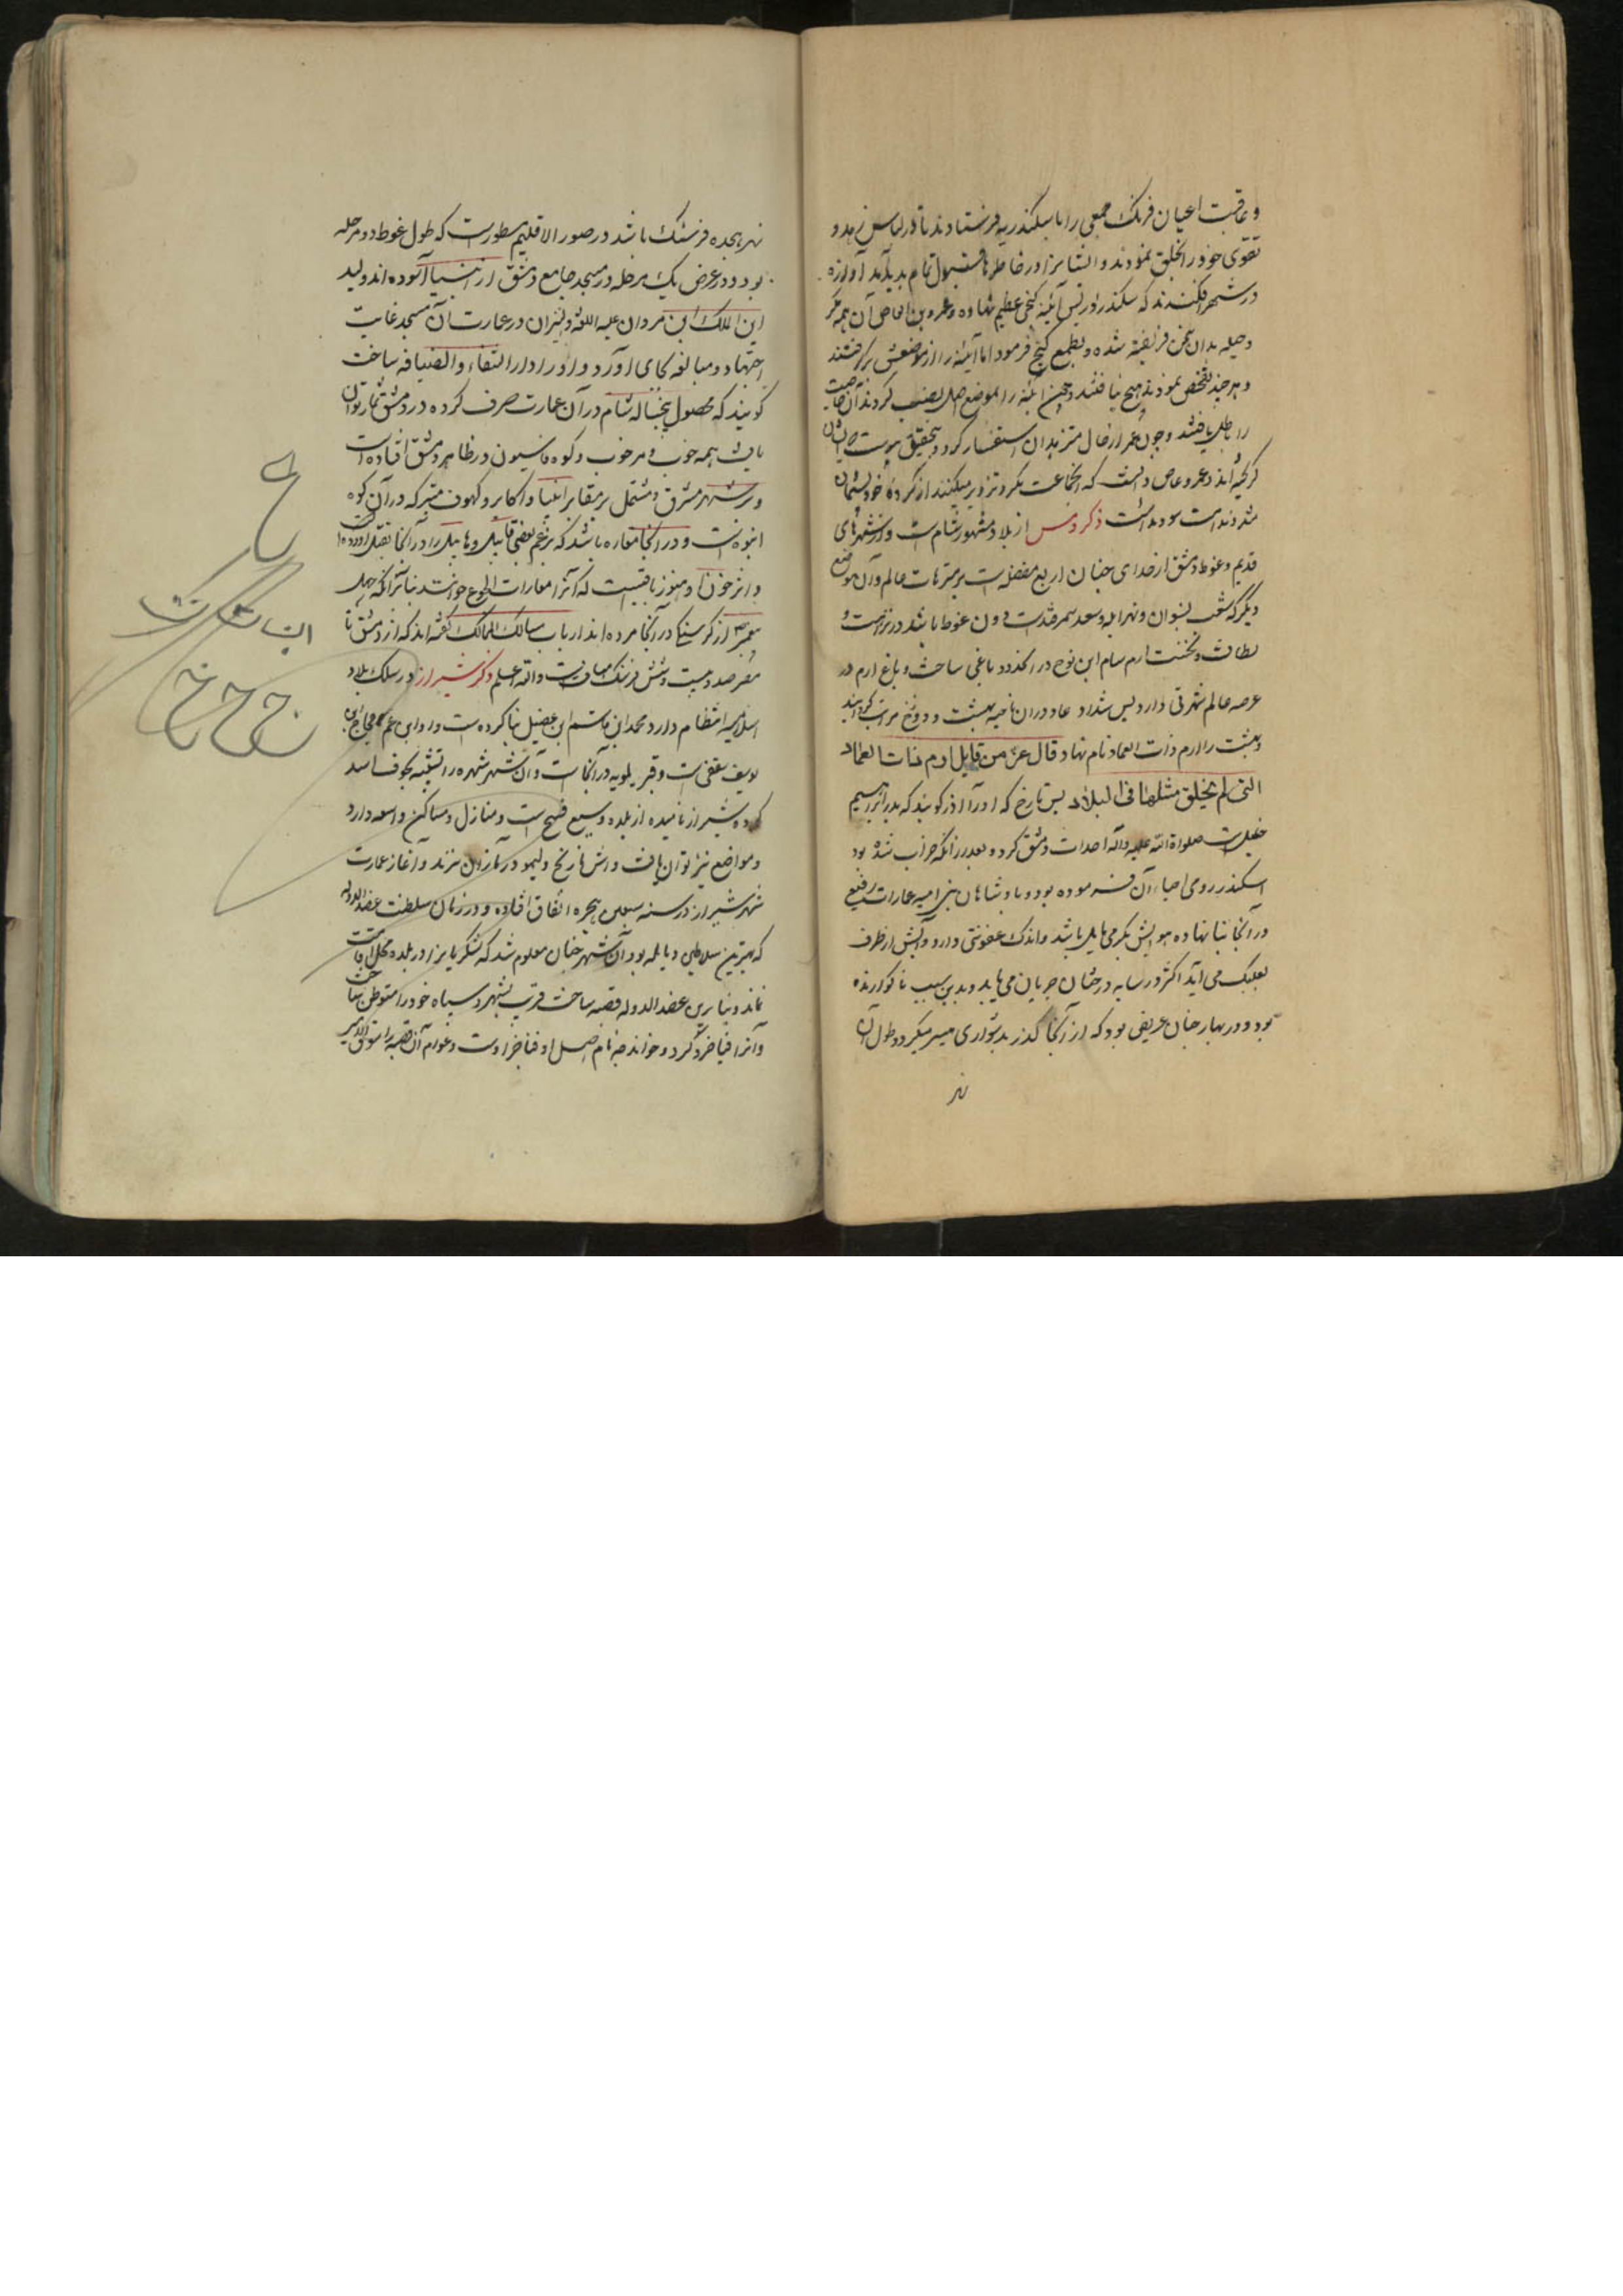 و عاقبت اعیان فرنک جمعی را باسکندریه فرستادند تا در لباس زهد و
تقوی خود را بخلق نمودند و ایشانرا در خاطرها قبول تمام پدید آمد آوازه
در شهر افکندند که سکندر در پس آینه کنجی عظیم نهاده و عمرو بن العاص آن همه مکر
و حیله بدان سخن فریفته شده و بطمع کنج فرمود تا آینه را از موضعش برکرفتند
و هر چند تفحص نمودند هیچ نیافتند و چون آینه را بموضع اصل نصب کردند آن خاصیت
را باطل یافتند و چون عمر از حال متزهدان استفسار کرد و بتحقیق پیوست که ایشان
کریخته اند و عمرو عاص دانست که آن جماعت مکر و تزویر میکنند از کرده خود پشیمان
شد و ندامت سود نداشت ذکر دمشق از بلاد مشهور شام است و از شهرهای
قدیم و غوطه دمشق از جنان اربع مفضل است بر منتزهات عالم و آن موضع
دیکر که شعب بوان و نهر ابله و سغد سمرقندست دون غوطه باشد در نزاهت و
لطافت و نخست ارم سام ابن نوح در آن حدود باغی ساخت و باغ ارم در
عرصه عالم شهرتی دارد پس شداد عاد در آن ناحیه بهشت و دوزخ مرتب کردانید
و بهشت را ارم ذات العماد نام نهاد قال عز من قایل ارم ذات العماد
التی لم یخلق مثلها فی البلاد پس تارخ که او را آذر کویند که پدر ابراهیم
خلیل است صلواة الله علیه و آله احداث دمشق کرد و بعد از آنکه خراب شده بود
اسکندر رومی احیاء آن فرموده بود و پادشاهان بنی امیه عمارات رفیع
در آنجا بنا نهاده هوایش بکرمی مایل باشد و اندک عفونتی دارد و آبش از طرف
بعلبک می آید اکثر در سایه درختان جریان می یابد و بدین سبب ناکوارنده
بود و در بهار چنان عریض بود که از آنجا کذر بدشواری میسر میکردد و طول آن
نهر
نهر هجده فرسنک باشد در صور الاقلیم مسطورست که طول غوطه دو مرحله
بود و در عرض یک مرحله در مسجد جامع دمشق انبیا آسوده اند ولید
ابن الملک ابن مروان علیه اللعنه و النیران در عمارت آن مسجد غایت
اجتهاد و مبالغه بجای آورد و او را دار الشفاء و الضیافه ساخت
کویند که محصول پنجساله شام در آن عمارت صرف کرده در دمشق ثمار توان
یافت همه خوب و مرغوب و کوه قاسیون در ظاهر دمشق افتاده است
و بر شهر مشرف و مشتمل بر مقابر انبیا و اکابر و کهوف متبرکه در آن کوه
انبوه است و در آنجا مغاره باشد که بزعم بعضی قابیل هابیل را در آنجا بقتل آورده است
و اثر خون او هنوز باقیست که آنرا مغارات الجوع خوانند بنابر آنکه چهل
پیغمبر از کرسنکی در آنجا مرده اند ارباب مسالک الممالک کفته اند که از دمشق تا
مصر صد و بیست و شش فرسنک مسافتست و الله اعلم ذکر شیراز در سلک بلاد
اسلامیه انتظام دارد محمد ابن قاسم ابن عقیل بنا کرده است و او ابن عم حجاج ابن
یوسف ثقفی است و قبر بابویه در آنجاست و آن شهر شهره را تشبیه بجوف اسد
کرده و شیراز نامیده از بلده وسیع فسیح است و منازل و مساکن واسعه دارد
و مواضع نیز توان یافت و اش نارنج و لیمو در بازارش نزند و آغاز عمارت
شهر شیراز در سنه سبعین هجره اتفاق افتاده و در زمان سلطنت عضد الدوله
که بهترین سلاطین دیالمه بود آن شهر چنان معلوم شد که لشکریانرا در بلده محل اقامت
نماند و بنابرین عضد الدوله قصبه ساخت قریب بشهر و سپاه خود را متوطن ساخت
و آنرا فنا خسرو کرد و خواند چه نام اصل او فنا خسرو است و عوام آن قصبه را سوق الامیر